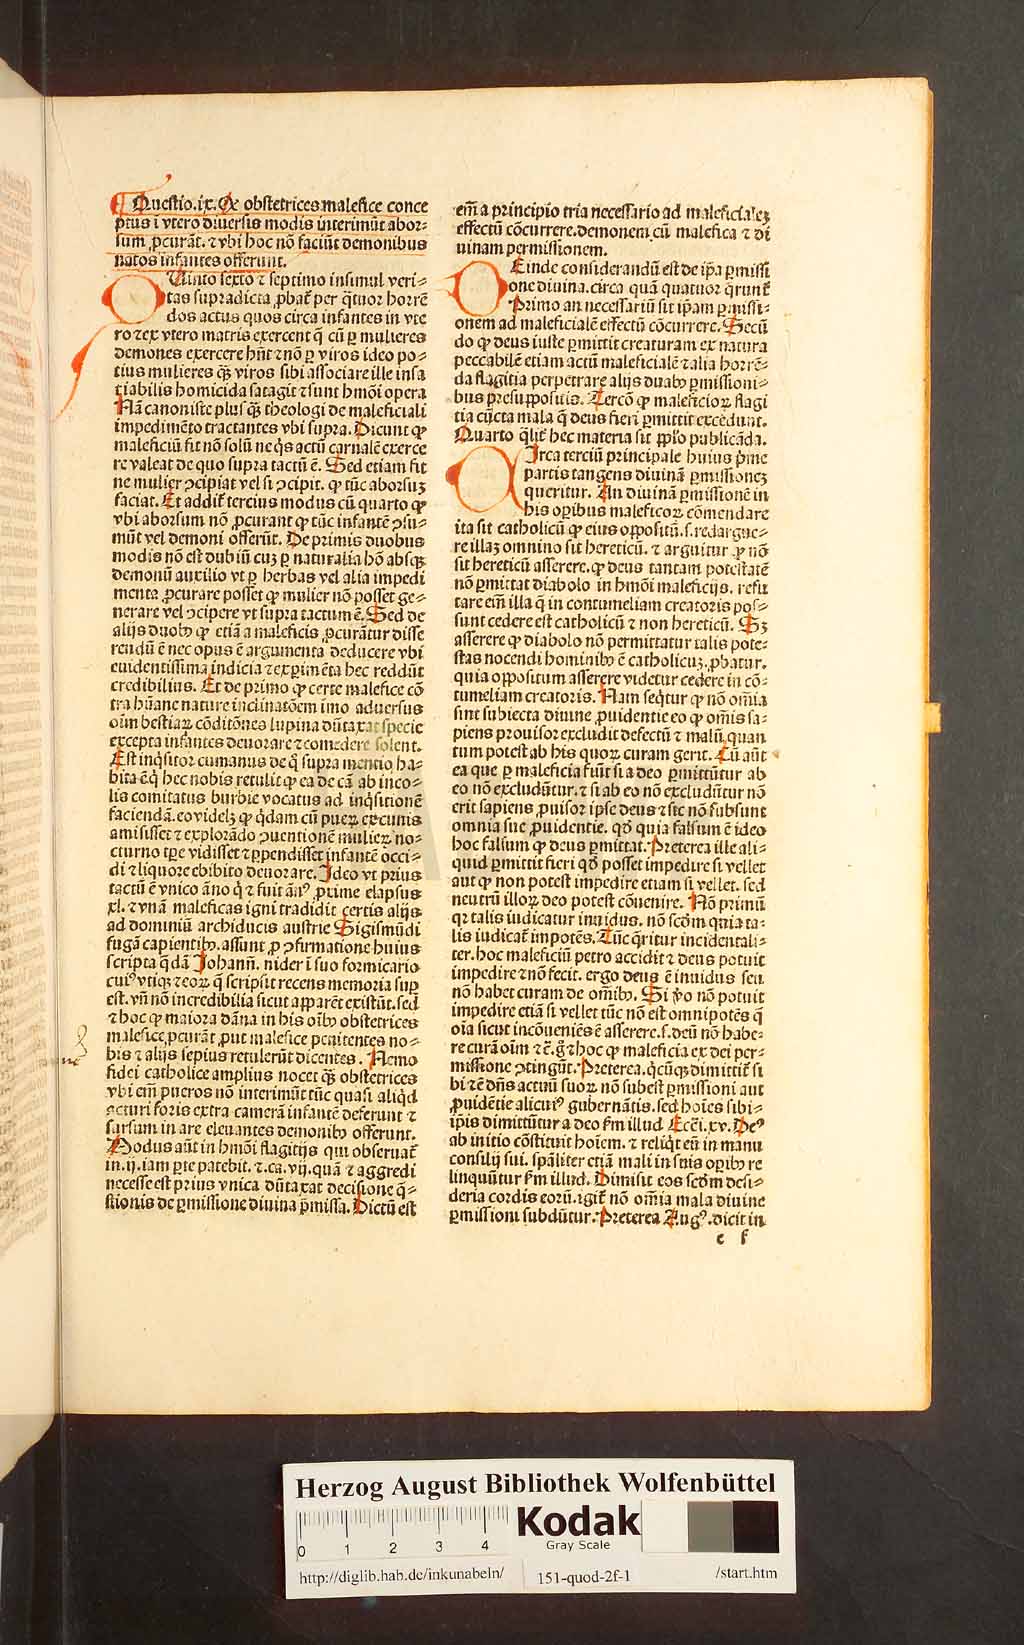 Questio .ix. Qꝙ obstetrices malefice conce
ptus ī vtero diuersis modis interimūt abor⸗
sum ꝓcurāt. ⁊ vbi hoc nō faciūt demonibus
natos infantes offerunt.
Uinto sexto ⁊ septimo insimul veri⸗
tas supradicta ꝓbat᷑ per q̈tuor horrē
dos actus quos circa infantes in vte
ro ⁊ ex vtero matris exercent q̄ cū ꝑ mulieres
demones exercere hn̄t ⁊ nō ꝑ viros ideo po⸗
tius mulieres q̄ꝫ viros sibi associare ille insa
tiabilis homicida satagit ⁊ sunt hmōi opera
Nā canoniste plus q̄ꝫ theologi de maleficiali
impedimēto tractantes vbi supra. Dicunt ꝙ
maleficiū fit nō solū ne q̇s actū carnalē exerce
re valeat de quo supra tactū ē. Sed etiam fit
ne mulier ꝯcipiat vel si ꝯcipit. ꝙ tūc aborsuꝫ
faciat. Et addit᷑ tercius modus cū quarto ꝙ
vbi aborsum nō ꝓcurant ꝙ tūc infantē ꝯsu⸗
mūt vel demoni offerūt. De primis duobus
modis nō est dubiū cuꝫ ꝑ naturalia hō absqꝫ
demonū auxilio vt ꝑ herbas vel alia impedi
menta ꝓcurare posset ꝙ mulier nō posset ge⸗
nerare vel ꝯcipere vt supra tactum ē. Sed de
alijs duobꝰ ꝙ etiā a maleficis ꝓcurātur disse
rendū ē nec opus ē argumenta deducere vbi
euidentissima indicia ⁊ expimēta hec reddūt
credibilius. Et de primo ꝙ certe malefice cō
tra hūane nature inclinatōem imo aduersus
oīm bestiaꝝ cōditōnes lupina dūtaxat specie
excepta infantes deuorare ⁊ comedere solent.
Est inq̇sitor cumanus de q̊ supra mentio ha⸗
bita ē q̇ hec nobis retulit ꝙ ea de cā ab inco⸗
lis comitatus burbie vocatus ad inq̇sitionē
faciendā. eo videlꝫ ꝙ q̇dam cū pueꝝ ex cunis
amisisset ⁊ explorādo ꝯuentionē mulieꝝ no⸗
cturno tp̄e vidisset ⁊ ꝑpendisset infantē occi⸗
di ⁊ liquore ebibito deuorare. Ideo vt prius
tactū ē vnico āno q̇ ⁊ fuit ānꝰ ꝓxime elapsus
xl. ⁊ vnā maleficas igni tradidit certis alijs
ad dominiū archiducis austrie Sigismūdi
fugā capientibꝰ. assunt ꝓ ꝯfirmatione huius
scripta q̄dā Johann̄. nider ī suo formicario
cuiꝰ vtiqꝫ ⁊ eoꝝ q̄ scripsit recens memoria sup
est. vn̄ nō incredibilia sicut apparēt existūt. sed
⁊ hoc ꝙ maiora dāna in his oībꝰ obstetrices
malefice ꝓcurāt ꝓut malefice penitentes no⸗
bis ⁊ alijs sepius retulerūt dicentes. Nemo
fidei catholice amplius nocet q̄ꝫ obstetrices
vbi em̄ pueros nō interimūt tūc quasi aliq̇d
acturi foris extra camerā infantē deferunt ⁊
sursum in aere eleuantes demonibꝰ offerunt.
Modus aūt in hmōi flagitijs qui obseruat᷑
in .ij. iam ꝑte patebit. ⁊ .ca. vij. quā ⁊ aggredi
necesse est prius vnica dūtaxat decisione q̄⸗
stionis de ꝑmissione diuina p̄missa. Dictū est
em̄ a principio tria necessario ad maleficialeꝫ
effectū cōcurrere. demonem cū malefica ⁊ di
uinam permissionem.
Einde considerandū est de ip̄a ꝑmissi
one diuina. circa quā quatuor q̄runt᷑
Primo an necessariū sit ip̄am ꝑmissi⸗
onem ad maleficialē effectū cōcurrere. Secū
do ꝙ deus iuste ꝑmittit creaturam ex natura
peccabilē etiam actū maleficialē ⁊ alia horrē⸗
da flagitia perpetrare alijs duabꝰ ꝑmissioni⸗
bus presuppositis. Tercō ꝙ maleficioꝝ flagi
tia cūcta mala q̄ deus fieri ꝑmittit excedunt.
Quarto q̈lit᷑ hec materia sit pp̄lo publicāda.
Irca terciū principale huius p̄me
partis tangens diuinā ꝑmissioneꝫ
queritur. An diuinā ꝑmissionē in
his oꝑibus maleficoꝝ cōmendare
ita sit catholicū ꝙ eius oppositū .s. redargue⸗
re illaꝫ omnino sit hereticū. ⁊ arguitur ꝙ nō
sit hereticū asserere. ꝙ deus tantam potestatē
nō ꝑmittat diabolo in hmōi maleficijs. refu
tare em̄ illa q̄ in contumeliam creatoris pos⸗
sunt cedere est catholicū ⁊ non hereticū. Sꝫ
asserere ꝙ diabolo nō permittatur talis pote⸗
stas nocendi hominibꝰ ē catholicuꝫ. ꝓbatur.
quia oppositum asserere videtur cedere in cō⸗
tumeliam creatoris. Nam seq̇tur ꝙ nō om̄ia
sint subiecta diuine ꝓuidentie eo ꝙ om̄is sa⸗
piens prouisor excludit defectū ⁊ malū quan
tum potest ab his quoꝝ curam gerit. Cū aūt
ea que ꝑ maleficia fiūt si a deo ꝑmittūtur ab
eo nō excludūtur. ⁊ si ab eo nō excludūtur nō
erit sapiens ꝓuisor ipse deus ⁊ sic nō subsunt
omnia sue ꝓuidentie. qd̄ quia falsum ē ideo
hoc falsum ꝙ deus ꝑmittat. Preterea ille ali⸗
quid ꝑmittit fieri qd̄ posset impedire si vellet
aut ꝙ non potest impedire etiam si vellet. sed
neutrū illoꝝ deo potest cōuenire. Nō primū
qꝛ talis iudicatur inuidus. nō scd̄m quia ta⸗
lis iudicat᷑ impotēs. Tūc q̄ritur incidentali⸗
ter. hoc maleficiū petro accidit ⁊ deus potuit
impedire ⁊ nō fecit. ergo deus ē inuidus seu
nō habet curam de om̄ibꝰ. Si v̄o nō potuit
impedire etiā si vellet tūc nō est omnipotēs q̄
oīa sicut incōueniēs ē asserere .s. deū nō habe⸗
re curā oīm ⁊ c̄. g̊ ⁊ hoc ꝙ maleficia ex dei per⸗
missione ꝯtingūt. Preterea. q̇cūqꝫ dimittit᷑ si
bi ⁊ ē dn̄s actuū suoꝝ nō subest ꝑmissioni aut
ꝓuidētie alicuiꝰ gubernātis. sed hoīes sibi⸗
ip̄is dimittūtur a deo s̄m illud Ecc̄i. xv. Deꝰ
ab initio cōstituit hoīem. ⁊ reliq̇t eū in manu
consilij sui. sp̄aliter etiā mali in suis oꝑibꝰ re
linquūtur s̄m illud. Dimisit eos scd̄m desi⸗
deria cordis eorū. igit᷑ nō om̄ia mala diuine
ꝑmissioni subdūtur. Preterea Augꝰ. dicit in
e f
Herzog August Bibliothek Wolfenbüttel
0 1 2 3 4
Kodak
Gray Scale
http://diglib.hab.de/inkunabeln/ 151-quod-2f-1 /start.htm